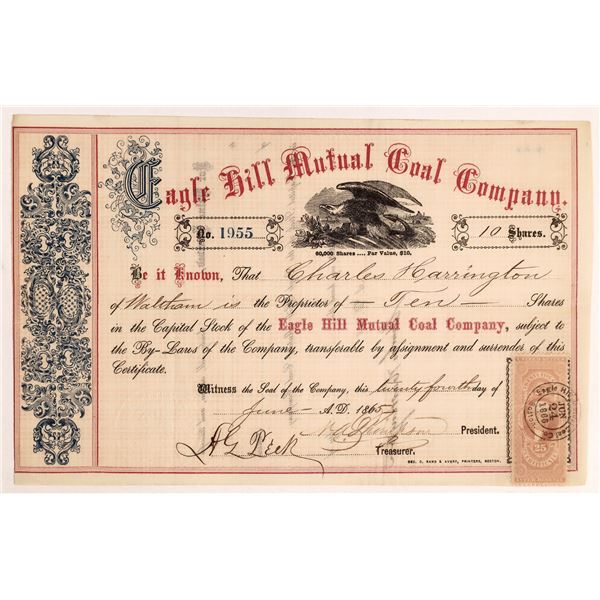 Eagle Hill Mutual Coal Company.
No. 1955
10 Shares.
60,000 Shares .... Par Value, $10.
Be it Known, That Charles Harrington
of Waltham is the Proprietor of — Ten — Shares
in the Capital Stock of the Eagle Hill Mutual Coal Company, subject to
the By-Laws of the Company, transferable by assignment and surrender of this
Certificate.
Witness the Seal of the Company, this twenty fourth day of
June A.D. 1865
President.
A G Peck
Treasurer.
GEO. C. RAND & AVERY, PRINTERS, BOSTON.
JUN
24
1865
25